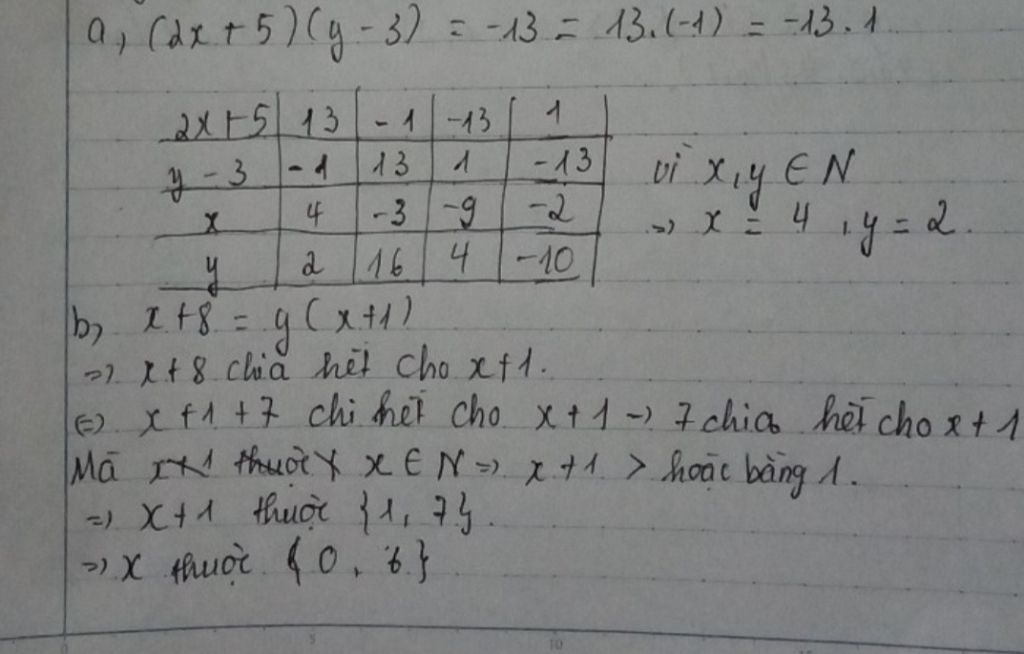 a, (2x+5)(y-3) = -13 = 13.(-1) = -13.1
2x+5 13 -1 -13 1
y-3 -1 13 1 -13
x 4 -3 -9 -2
y 2 16 4 -10
vì x,y ∈ N
=> x = 4, y = 2.
b, x+8 = y(x+1)
=> x+8 chia hết cho x+1.
<=> x+1+7 chi hết cho x+1 -> 7 chia hết cho x+1
Mà x+1 thuộc x ∈ N => x+1 > hoặc bằng 1.
=> x+1 thuộc {1, 7}.
=> x thuộc {0, 6}
5 10